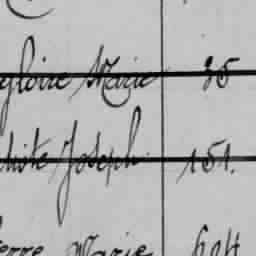 gloire Marie 35
tiste Joseph 151.
erre Marie 604